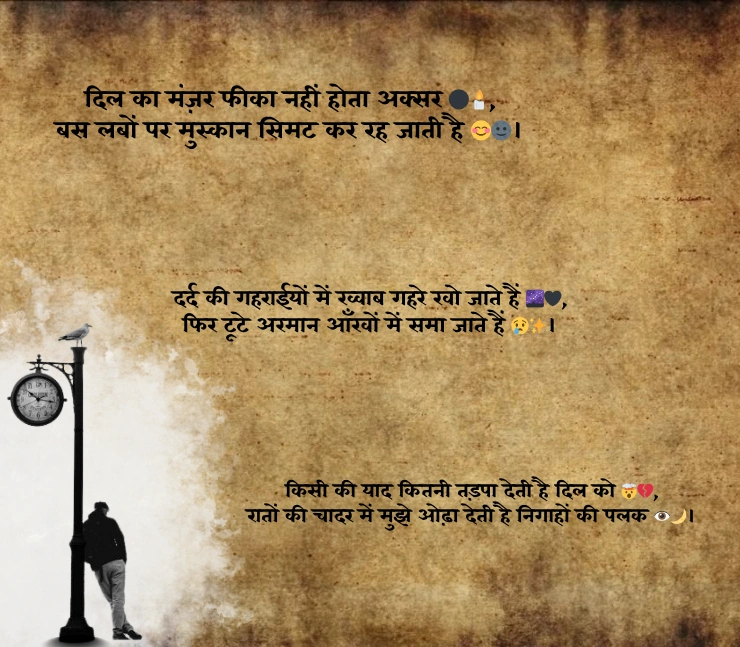 दिल का मंज़र फीका नहीं होता अक्सर 🌑🕯️,
बस लबों पर मुस्कान सिमट कर रह जाती है 😊🌚।
दर्द की गहराईयों में ख्वाब गहरे खो जाते हैं 🌌🖤,
फिर टूटे अरमान आँखों में समा जाते हैं 😢✨।
किसी की याद कितनी तड़पा देती है दिल को 🤯💔,
रातों की चादर में मुझे ओढ़ा देती है निगाहों की पलक 👁️🌙।